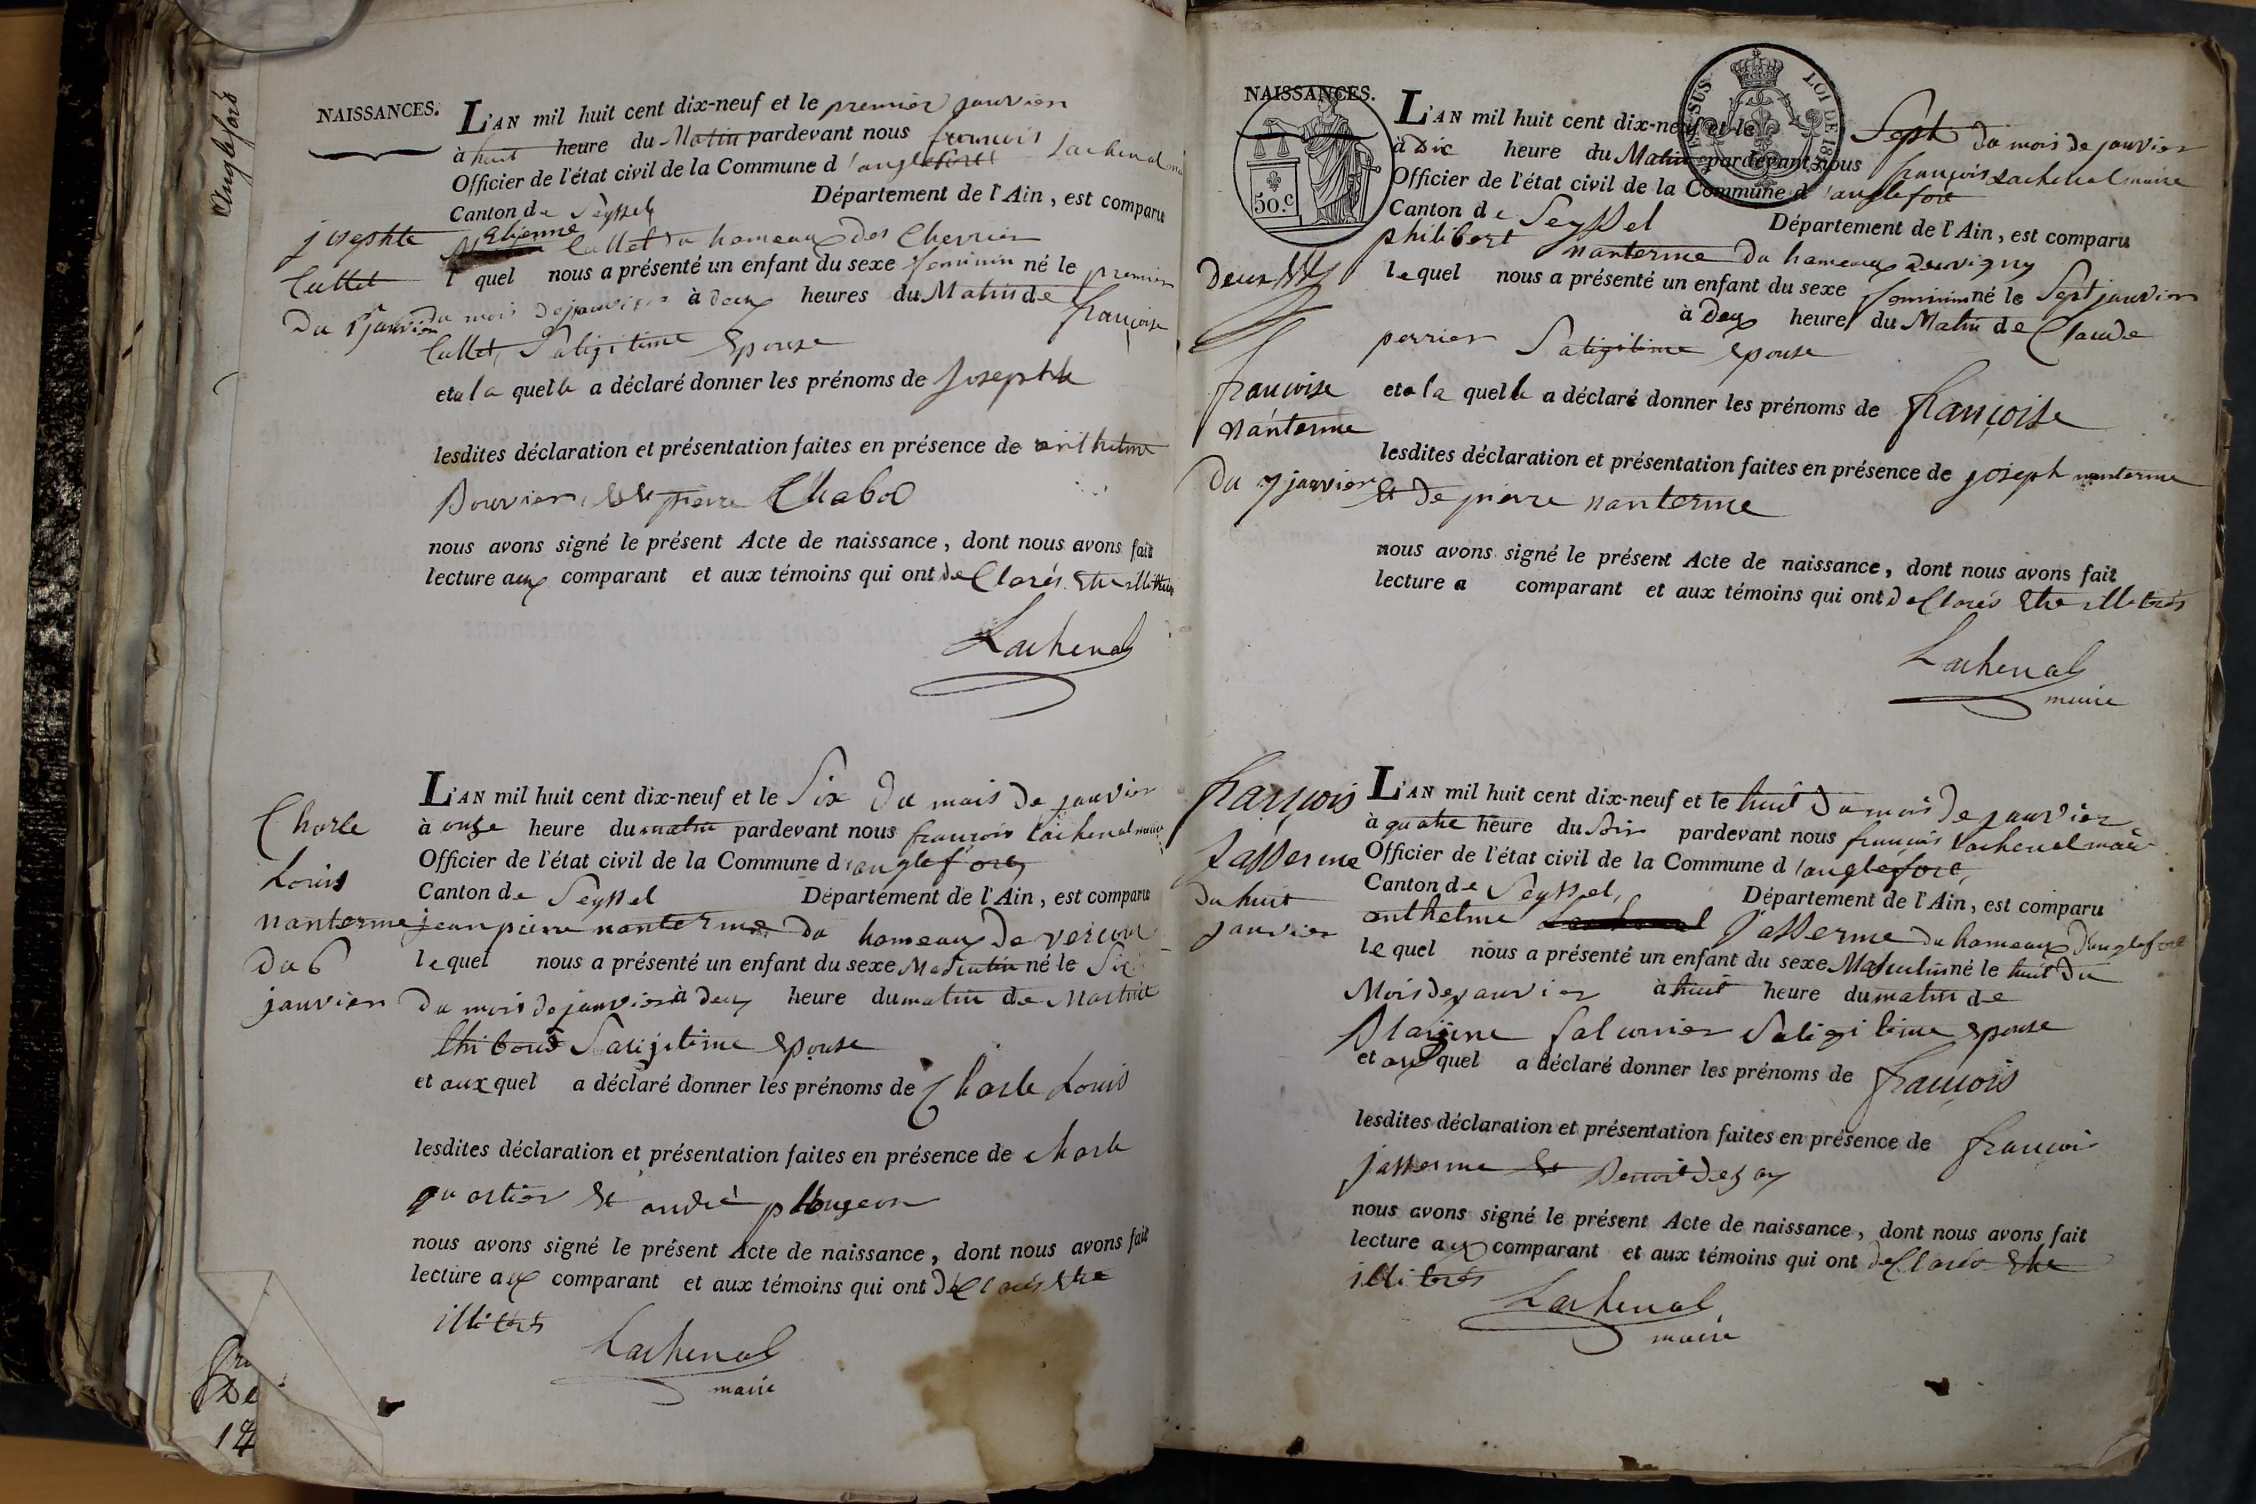 anglefort
NAISSANCES.
L'AN mil huit cent dix-neuf et le premier janvier
à huit heure du Matin pardevant nous francois Lachenal
Officier de l'état civil de la Commune d'anglefort
Canton de Seyssel Département de l'Ain, est comparu
Etienne Cullet du hameaux des Chevrier
lequel nous a présenté un enfant du sexe feminin né le premier
du mois de janvier à deux heures du Matin de françoise
Cullet, Saligitime Epouse
et a la quelle a déclaré donner les prénoms de Josephte
lesdites déclaration et présentation faites en présence de anthelme
Bouvier, Et de pierre Chabod
nous avons signé le présent Acte de naissance, dont nous avons fait
lecture aux comparant et aux témoins qui ont declarés Etre
Lachenal
josephte
Cullet
Du 1r janvier
L'AN mil huit cent dix-neuf et le Six du mois de janvier
à onze heure du matin pardevant nous francois lachenal maire
Officier de l'état civil de la Commune d'anglefort
Canton de Seyssel Département de l'Ain, est comparu
jean pierre nanterme du hameaux de vercour
lequel nous a présenté un enfant du sexe Masculin né le Six
du mois de janvier à deux heure du matin de
thiboud Saligitime Epouse
et aux quel a déclaré donner les prénoms de Charle Louis
lesdites déclaration et présentation faites en présence de charle
quartier Et andré
nous avons signé le présent Acte de naissance, dont nous avons fait
lecture aux comparant et aux témoins qui ont déclarés Etre
illitrés
Lachenal
maire
Charle
Louis
nanterme
du 6
janvier
NAISSANCES.
50.c
LOI DE 18
L'AN mil huit cent dix-neuf et le Sept du mois de janvier
à Dix heure du Matin pardevant nous françois Lachenal maire
Officier de l'état civil de la Commune d'anglefort
Canton de Seyssel Département de l'Ain, est comparu
philibert nanterme du hameaux
lequel nous a présenté un enfant du sexe feminin né le Sept janvier
à Deux heure du Matin de Claude
perrier Saligitime Epouse
et a la quelle a déclaré donner les prénoms de françoise
lesdites déclaration et présentation faites en présence de joseph nanterme
Et De pierre nanterme
nous avons signé le présent Acte de naissance, dont nous avons fait
lecture a comparant et aux témoins qui ont declarés Etre illetrés
Lachenal
maire
Deux
françoise
nanterme
Du 7 janvier
L'AN mil huit cent dix-neuf et le huit du mois de janvier
à quatre heure du Soir pardevant nous francois lachenal maire
Officier de l'état civil de la Commune d'anglefort,
Canton de Seyssel, Département de l'Ain, est comparu
anthelme Jasserme du hameaux d'anglefort
lequel nous a présenté un enfant du sexe Masculin né le huit Du
Mois de janvier à huit heure du matin de
Saligitime epouse
et aux quel a déclaré donner les prénoms de francois
lesdites déclaration et présentation faites en présence de francois
jasserme Et
nous avons signé le présent Acte de naissance, dont nous avons fait
lecture aux comparant et aux témoins qui ont declarés Etre
illitrés
Lachenal
maire
françois
Jasserme
Du huit
janvier